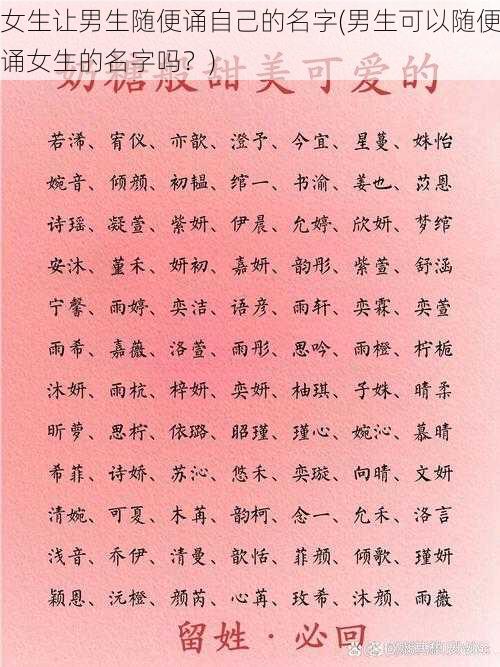 女生让男生随便诵自己的名字(男生可以随便
诵女生的名字吗？)
奶糖般甜美可爱的
若浠、宥仪、亦歆、澄予、今宜、星蔓、姝怡
婉音、倾颜、初韫、绾一、书渝、姜也、苡恩
诗瑶、凝萱、紫妍、伊晨、允婷、欣妍、梦绾
安沐、堇禾、妍初、嘉妍、韵彤、紫萱、舒涵
宁馨、雨婷、奕洁、语彦、雨轩、奕霖、奕萱
雨希、嘉薇、洛萱、雨彤、思吟、雨橙、柠栀
沐妍、雨杭、梓妍、奕妍、柚琪、子姝、晴柔
昕萝、思柠、依璐、昭瑾、瑾心、婉沁、慕晴
希菲、诗娇、苏沁、悠禾、奕璇、向晴、文妍
清婉、可夏、木苒、韵柯、念一、允禾、洛言
浅音、乔伊、清曼、歆恬、菲颜、倾歌、瑾妍
颖恩、沅橙、颜芮、心苒、玫希、沐颜、雨薇
留姓·必回